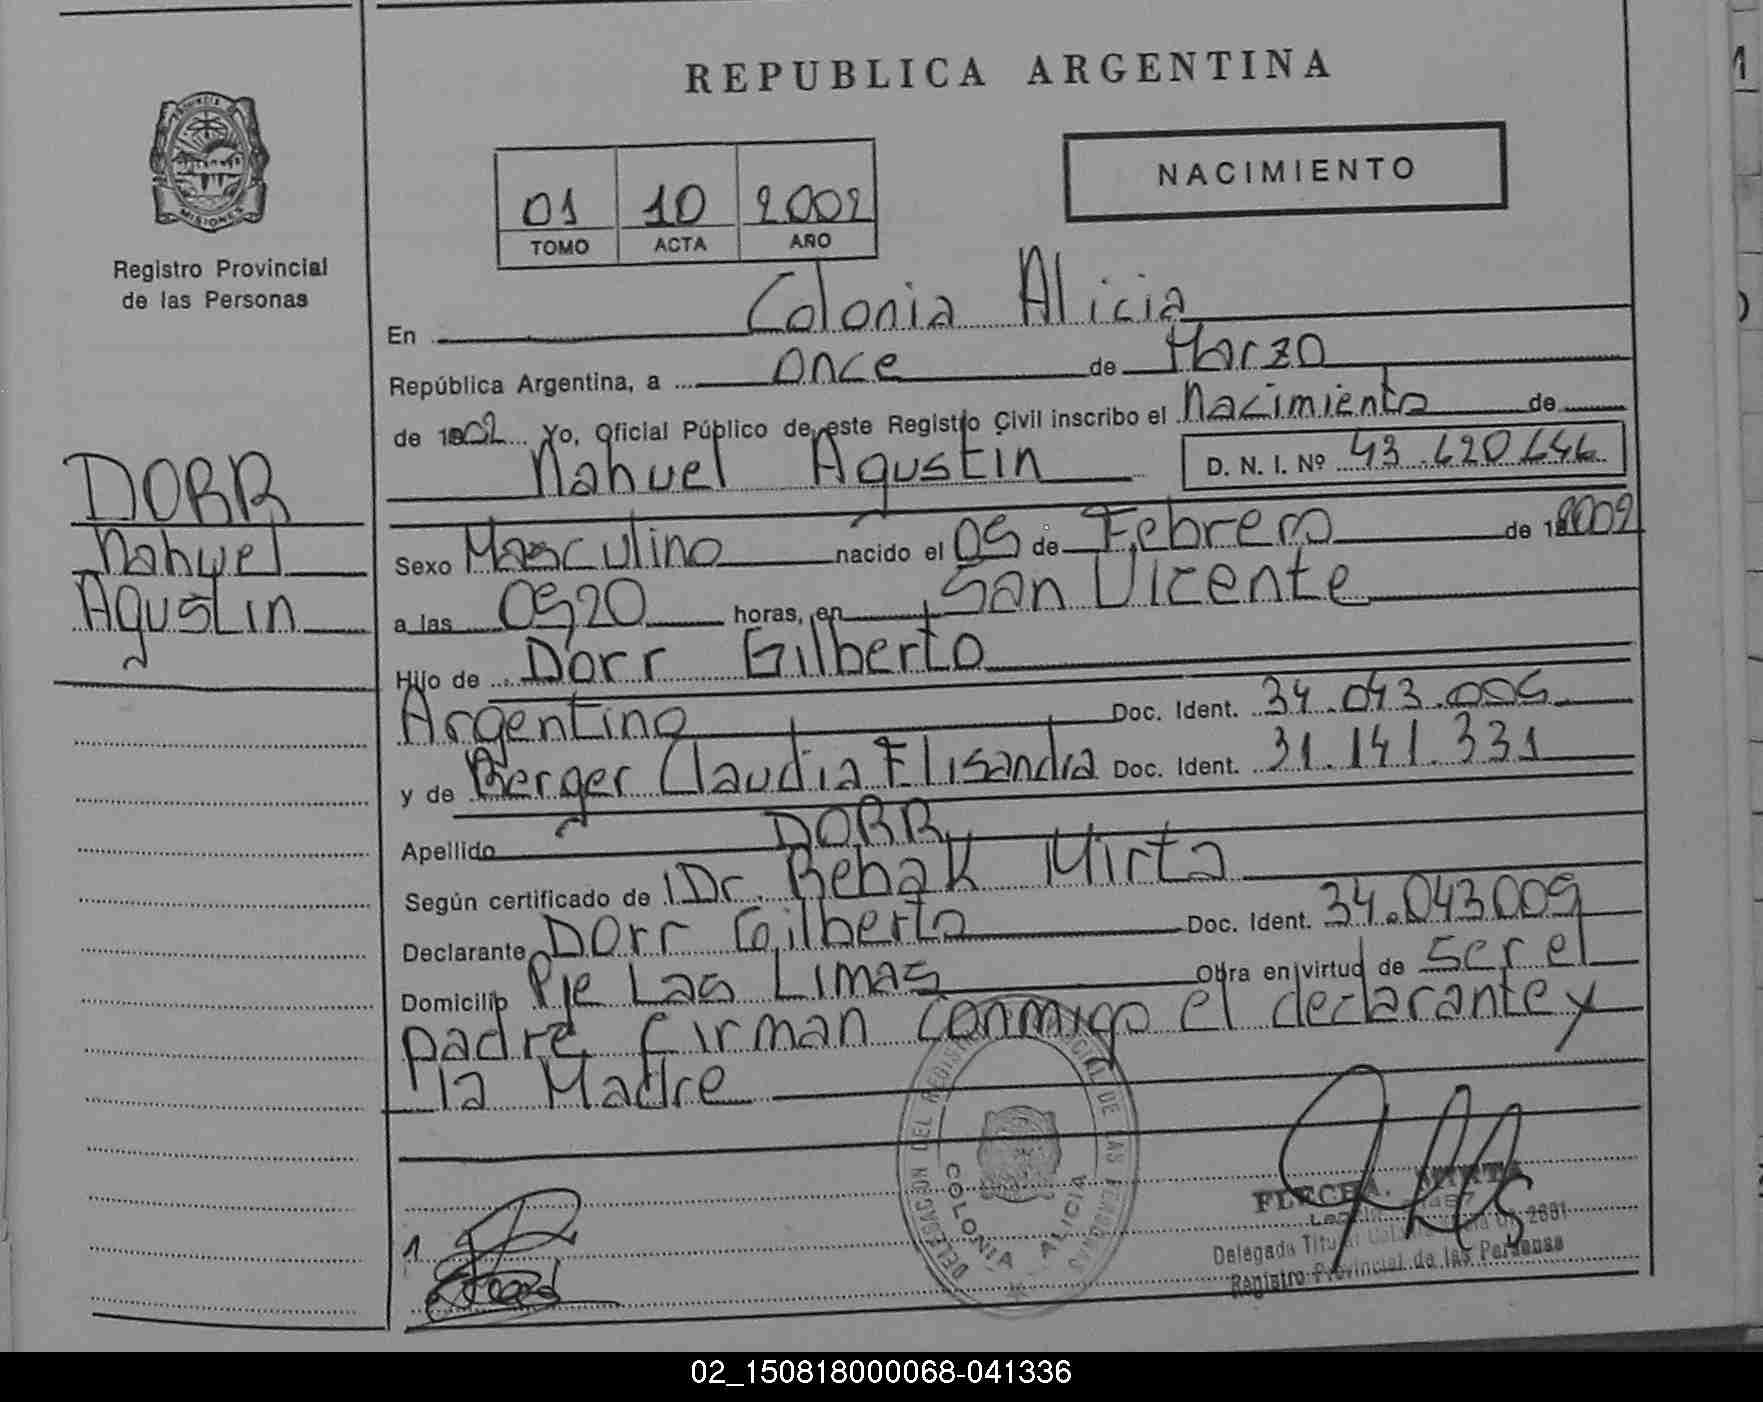 REPUBLICA ARGENTINA
NACIMIENTO
01 10 2002
TOMO ACTA AÑO
MISIONES
Registro Provincial
de las Personas
En Colonia Alicia
República Argentina, a once de Marzo
de 2002 Yo, Oficial Público de este Registro Civil inscribo el Nacimiento de
Nahuel Agustin D. N. I. Nº 43.620.646
DORR
Nahuel
Agustin
Sexo Masculino nacido el 05 de Febrero de 2002
a las 0520 horas, en San Vicente
Hijo de Dorr Gilberto
Argentino Doc. Ident. 34.043.005
y de Berger Claudia Elisandra Doc. Ident. 31.141.331
Apellido DORR
Según certificado de Dr. Rebak Mirta
Declarante Dorr Gilberto Doc. Ident. 34.043005
Domicilio Pje Las Limas Obra en virtud de ser el
padre firman conmigo el declarante y
la Madre
DELEGACION DEL REGISTRO PROVINCIAL DE LAS PERSONAS
COLONIA ALICIA
Delegada Titular
Registro Provincial de las Personas
02_150818000068-041336